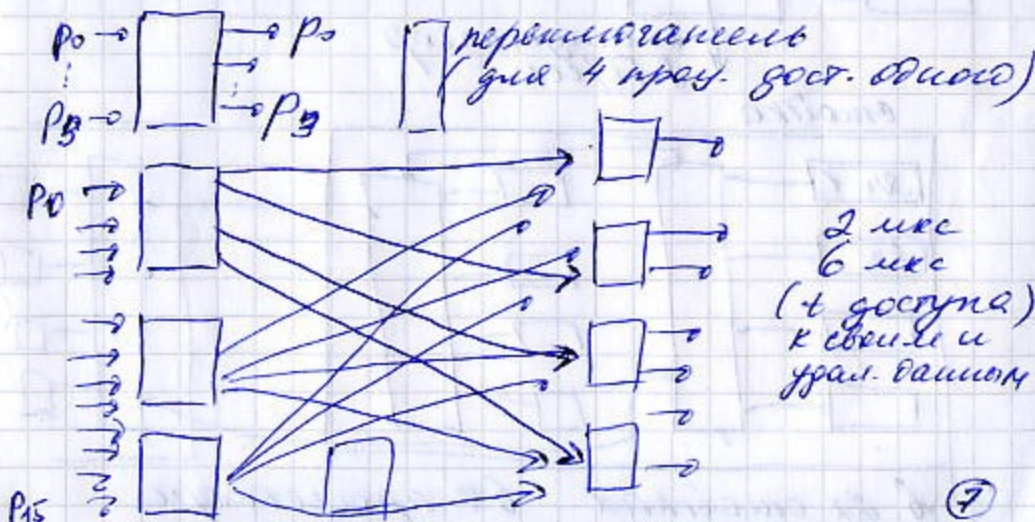 P0 P0
переключатель
(для 4 проц. дост. одного)
P3 P3
P0
2 мкс
6 мкс
(t доступа)
к своим и
удал. данным
P15
7